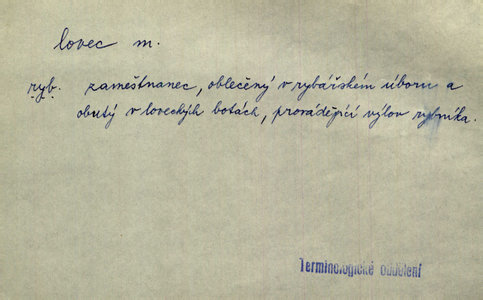 lovec m.
ryb. zaměstnanec, oblečený v rybářském úboru a
obutý v loveckých botách, provádějící výlov rybníka.
Terminologické oddělení